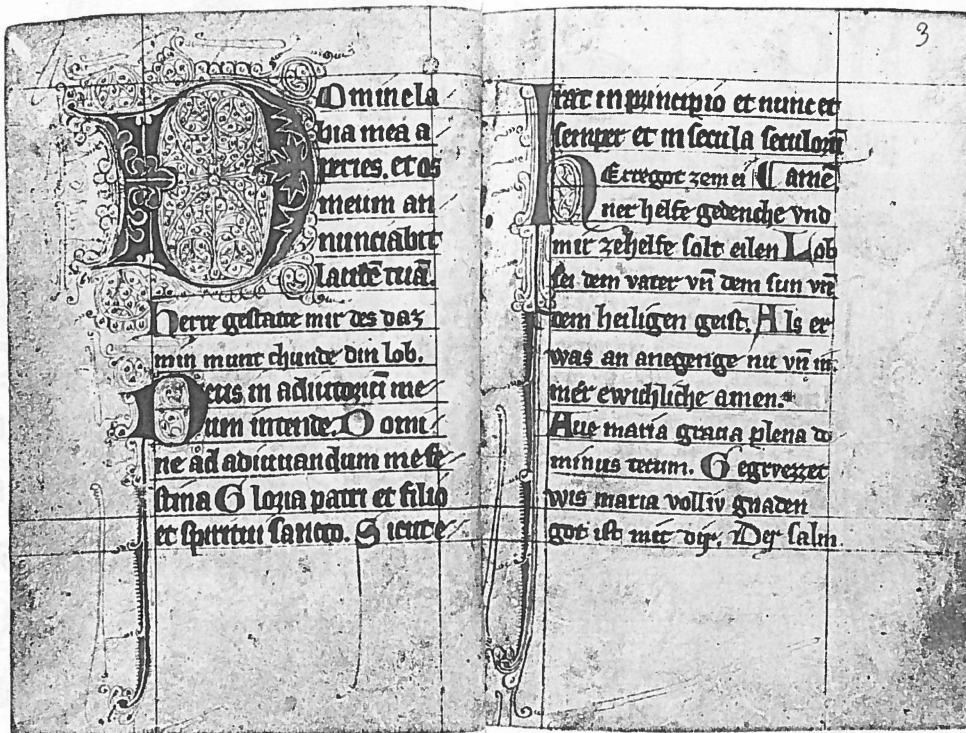 Domine la
bia mea a
peries. et os
meum an
nunciabit
laudē tuā.
herre gestatte mir des daz
min munt chunde din lob.
Deus in adiutoriū me
um intende. Domi
ne ad adiuuandum me fe
stina Gloria patri et filio
et spiritui sancto. Sicut e
3
rat in principio et nunc et
semper et in secula seculorū
Herregot ze mei Ame
ner helfe gedenche vnd
mir zehelfe solt eilen Lob
sei dem vater vn̄ dem sun vn̄
dem heiligen geist. Als er
was an anegenge nu vn̄ im
mer ewichliche amen.
Aue maria gracia plena do
minus tecum. Gegrvezzet
wis maria volliv gnaden
got ist mit dir. Der salm